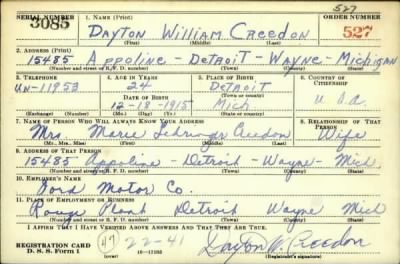 527
SERIAL NUMBER 1. NAME (Print) ORDER NUMBER
3085 DAYTON WILLIAM CREEDON 527
(First) (Middle) (Last)
2. ADDRESS (Print)
15485 Appoline - DETROIT - WAYNE - MICHIGAN
(Number and street or R. F. D. number) (Town) (County) (State)
3. TELEPHONE 4. AGE IN YEARS 5. PLACE OF BIRTH 6. COUNTRY OF CITIZENSHIP
UN-11953 24 DETROIT
DATE OF BIRTH (Town or county)
12-18-1915 Mich U.S.A.
(Exchange) (Number) (Mo.) (Day) (Yr.) (State or country)
7. NAME OF PERSON WHO WILL ALWAYS KNOW YOUR ADDRESS 8. RELATIONSHIP OF THAT PERSON
Mrs. Creedon Wife
(Mr., Mrs., Miss) (First) (Middle) (Last)
9. ADDRESS OF THAT PERSON
15485 Appoline - Detroit - Wayne - Mich
(Number and street or R. F. D. number) (Town) (County) (State)
10. EMPLOYER'S NAME
Ford Motor Co.
11. PLACE OF EMPLOYMENT OR BUSINESS
Rouge Plant Detroit Wayne Mich
(Number and street or R. F. D. number) (Town) (County) (State)
I AFFIRM THAT I HAVE VERIFIED ABOVE ANSWERS AND THAT THEY ARE TRUE.
REGISTRATION CARD
D. S. S. Form 1 47 22-41 Dayton W. Creedon